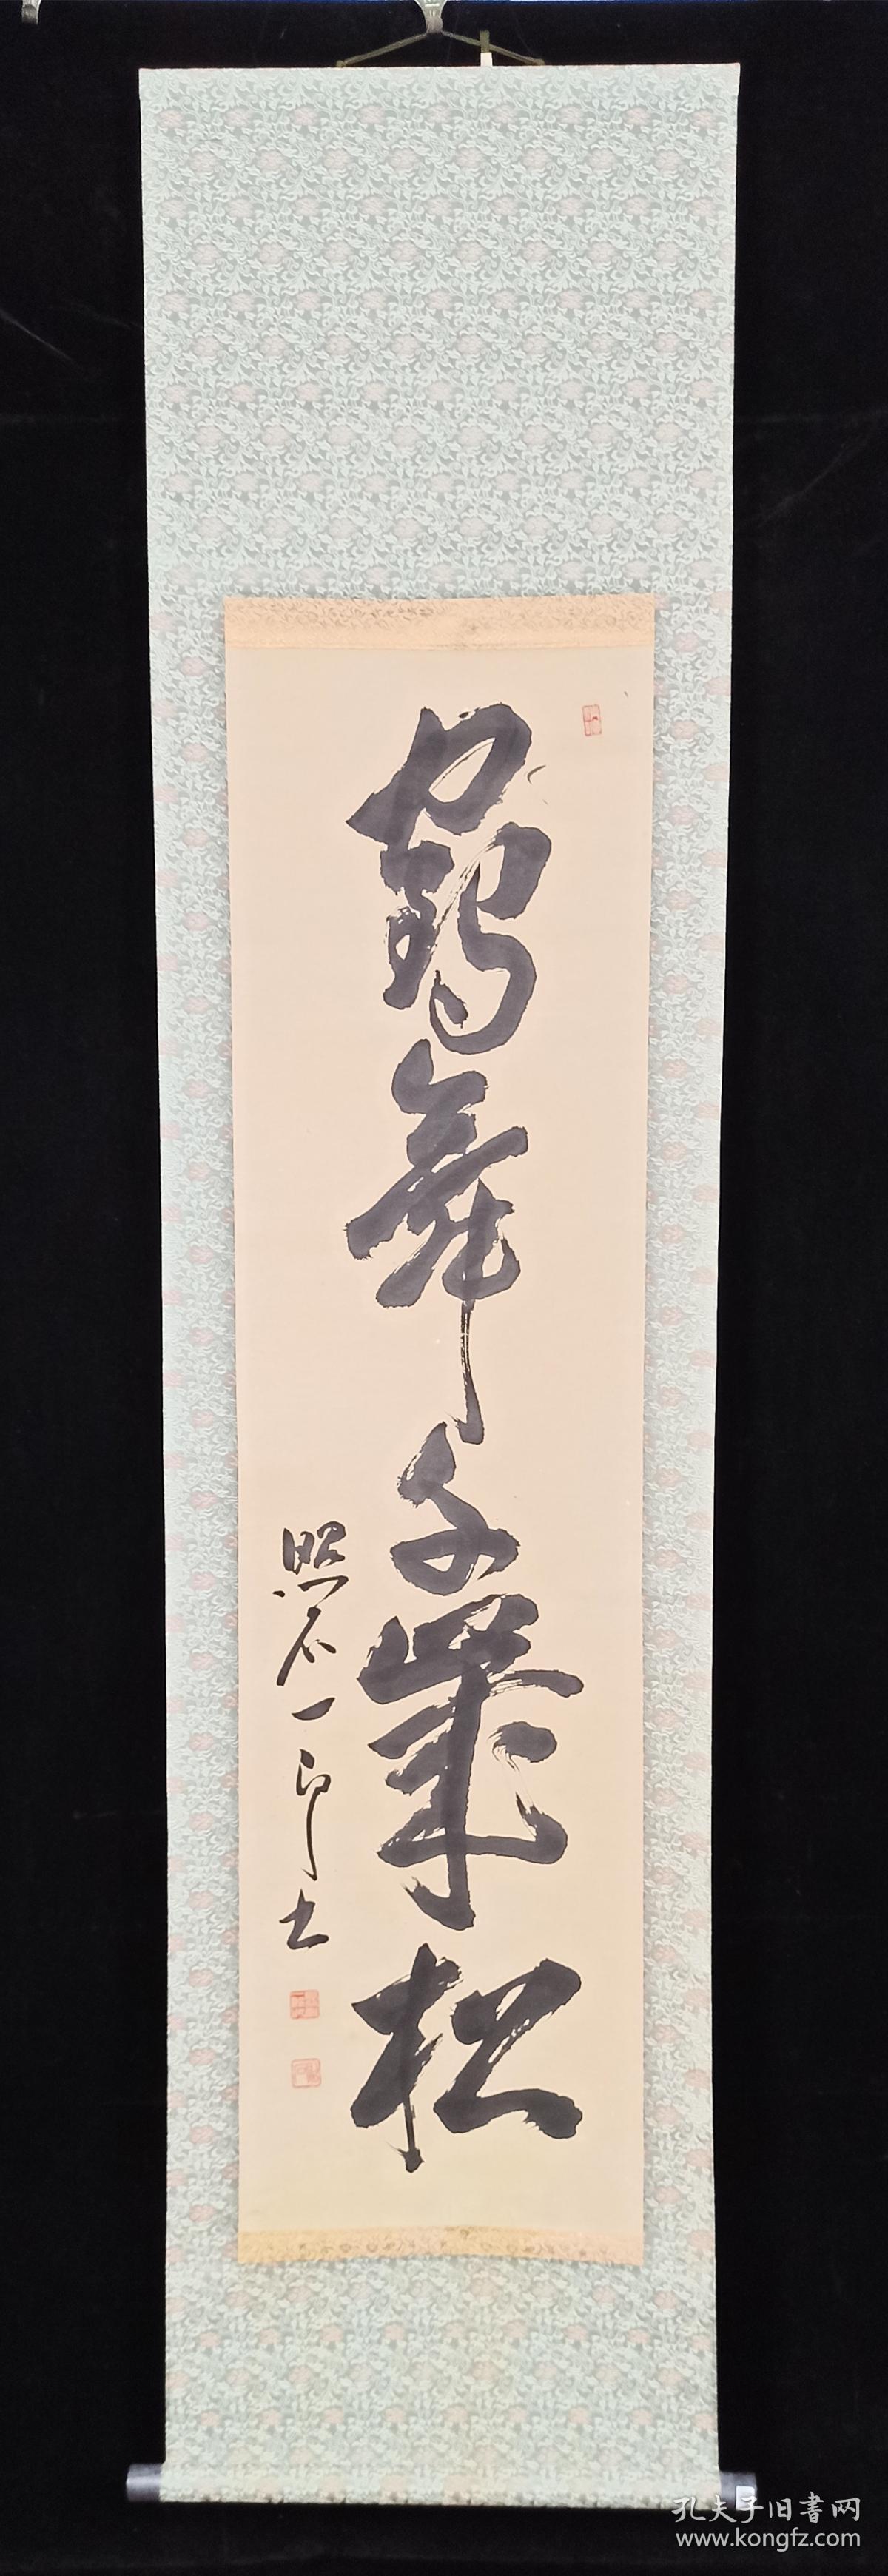 鶴舞千年松
照石一印士
孔夫子旧書网
www.kongfz.com